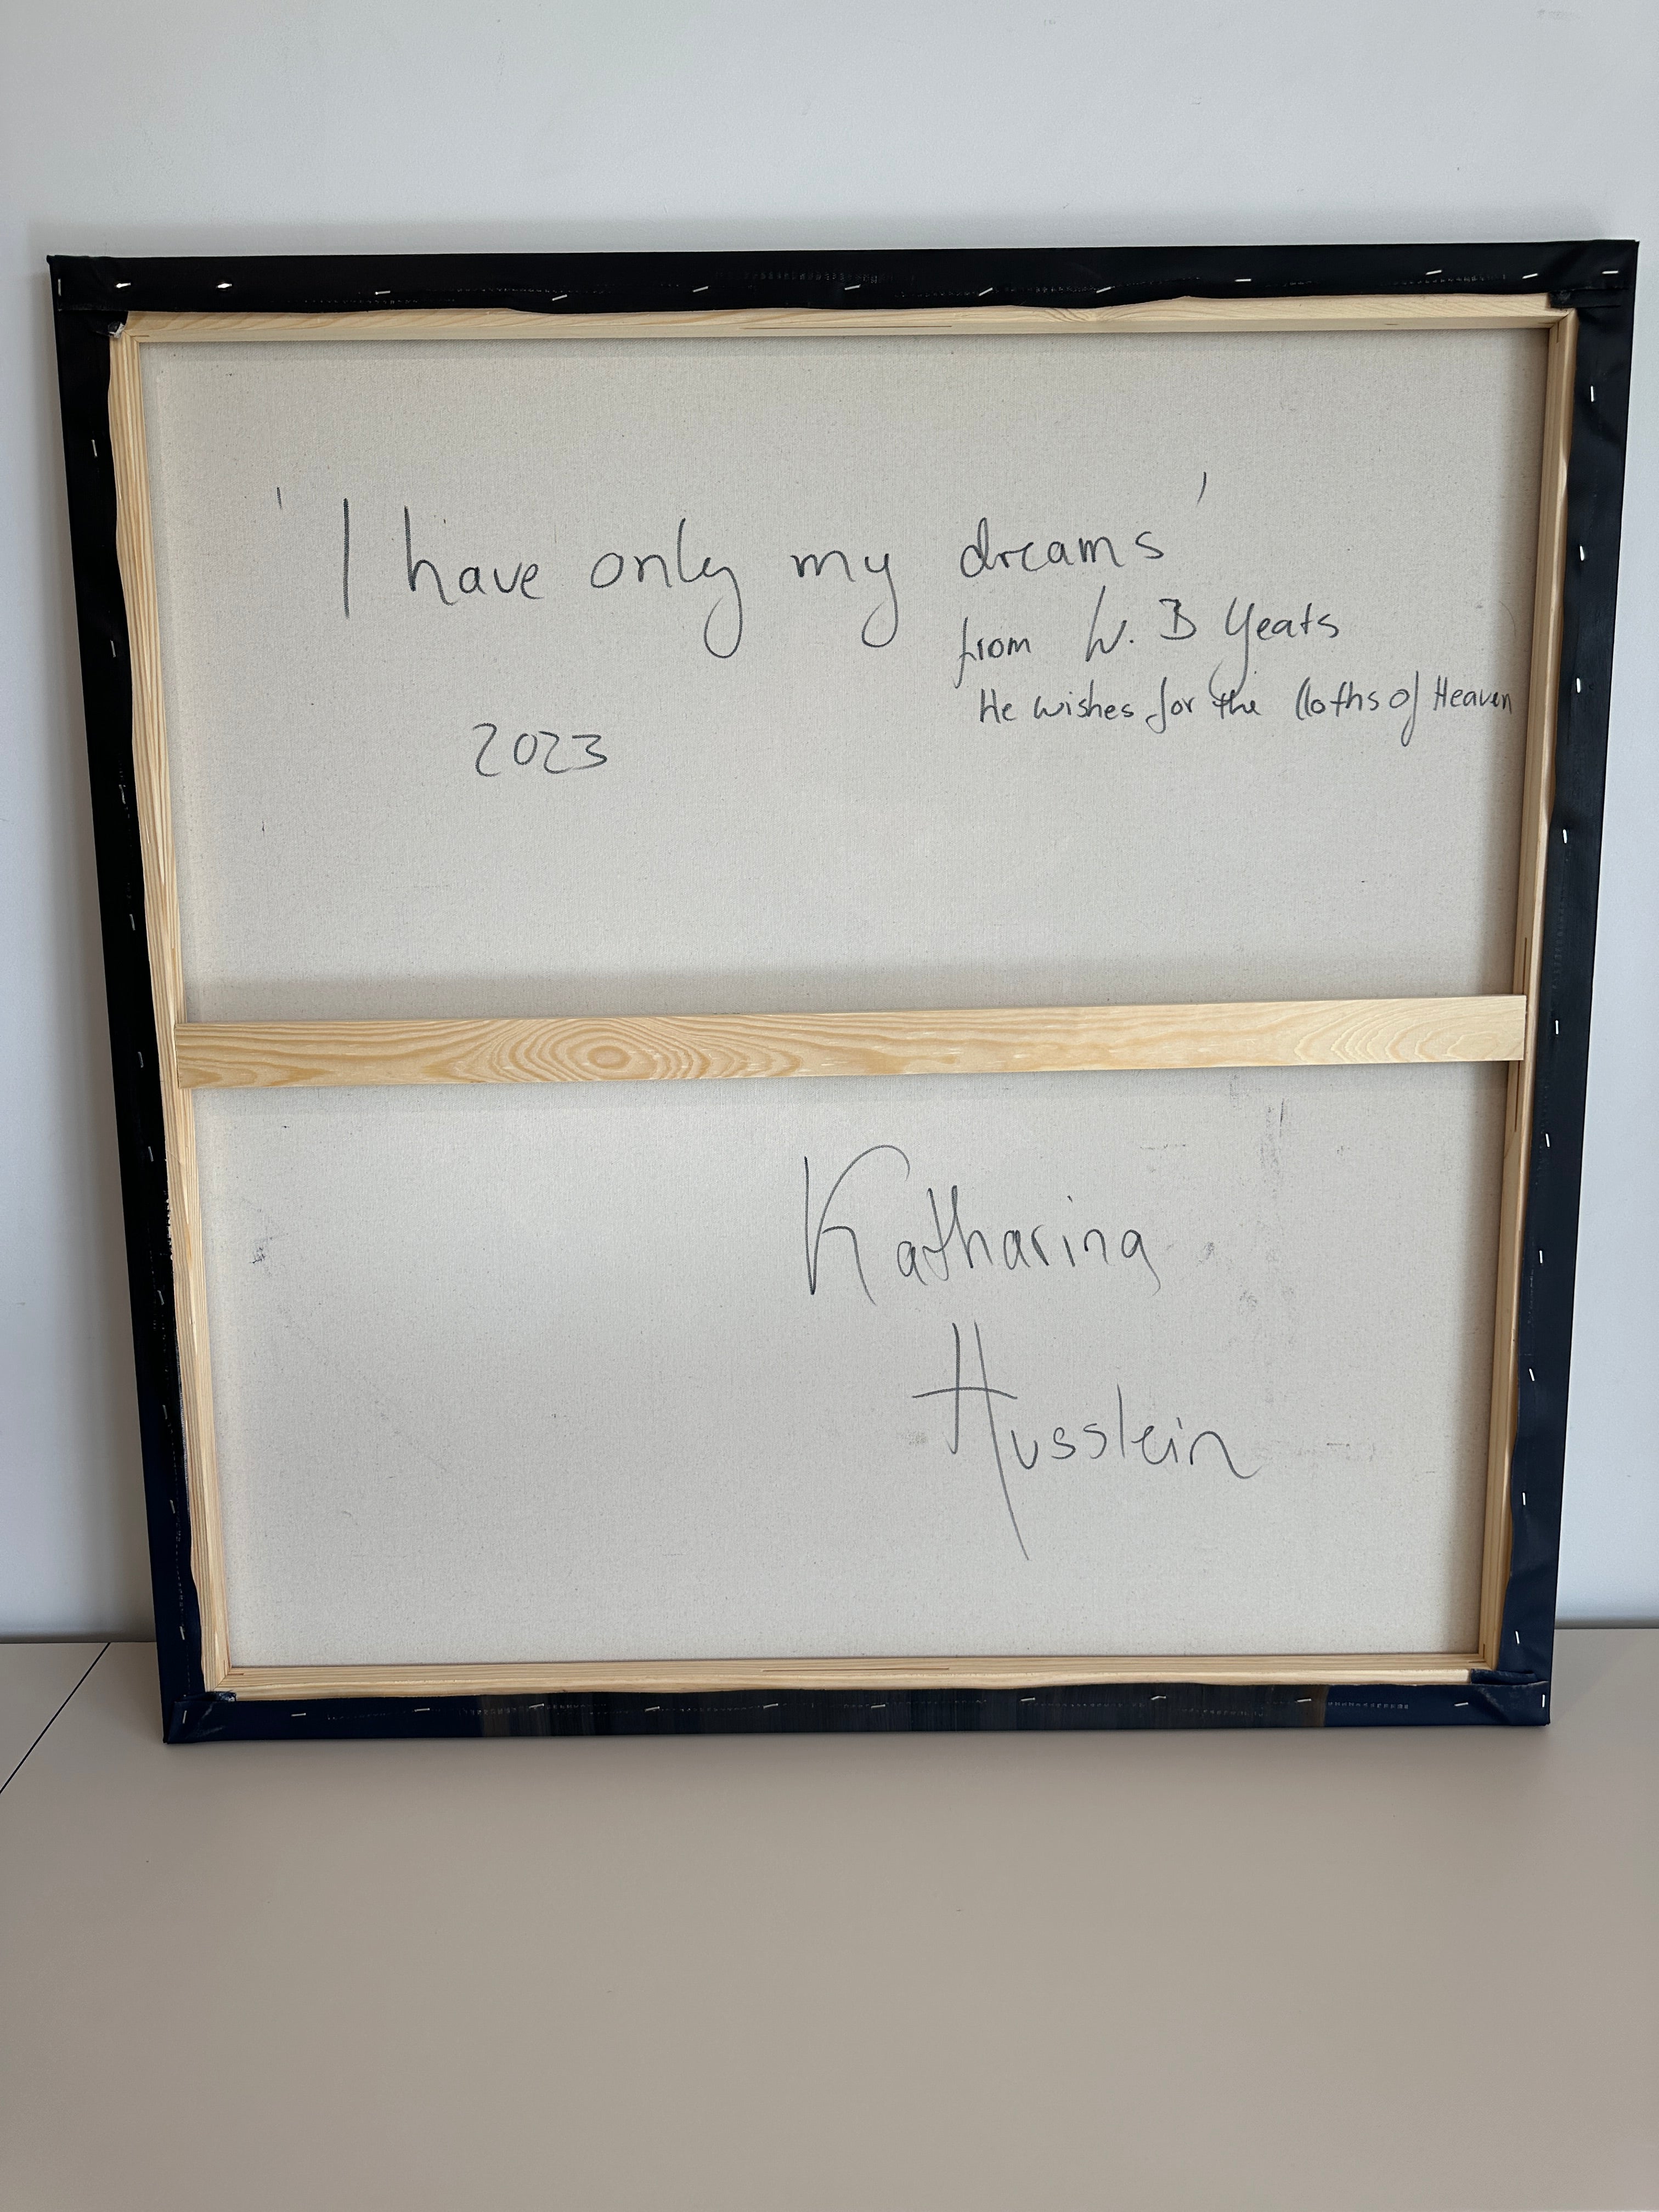 'I have only my dreams'
from W. B Yeats
He wishes for the Cloths of Heaven
2023
Katharina
Husslein